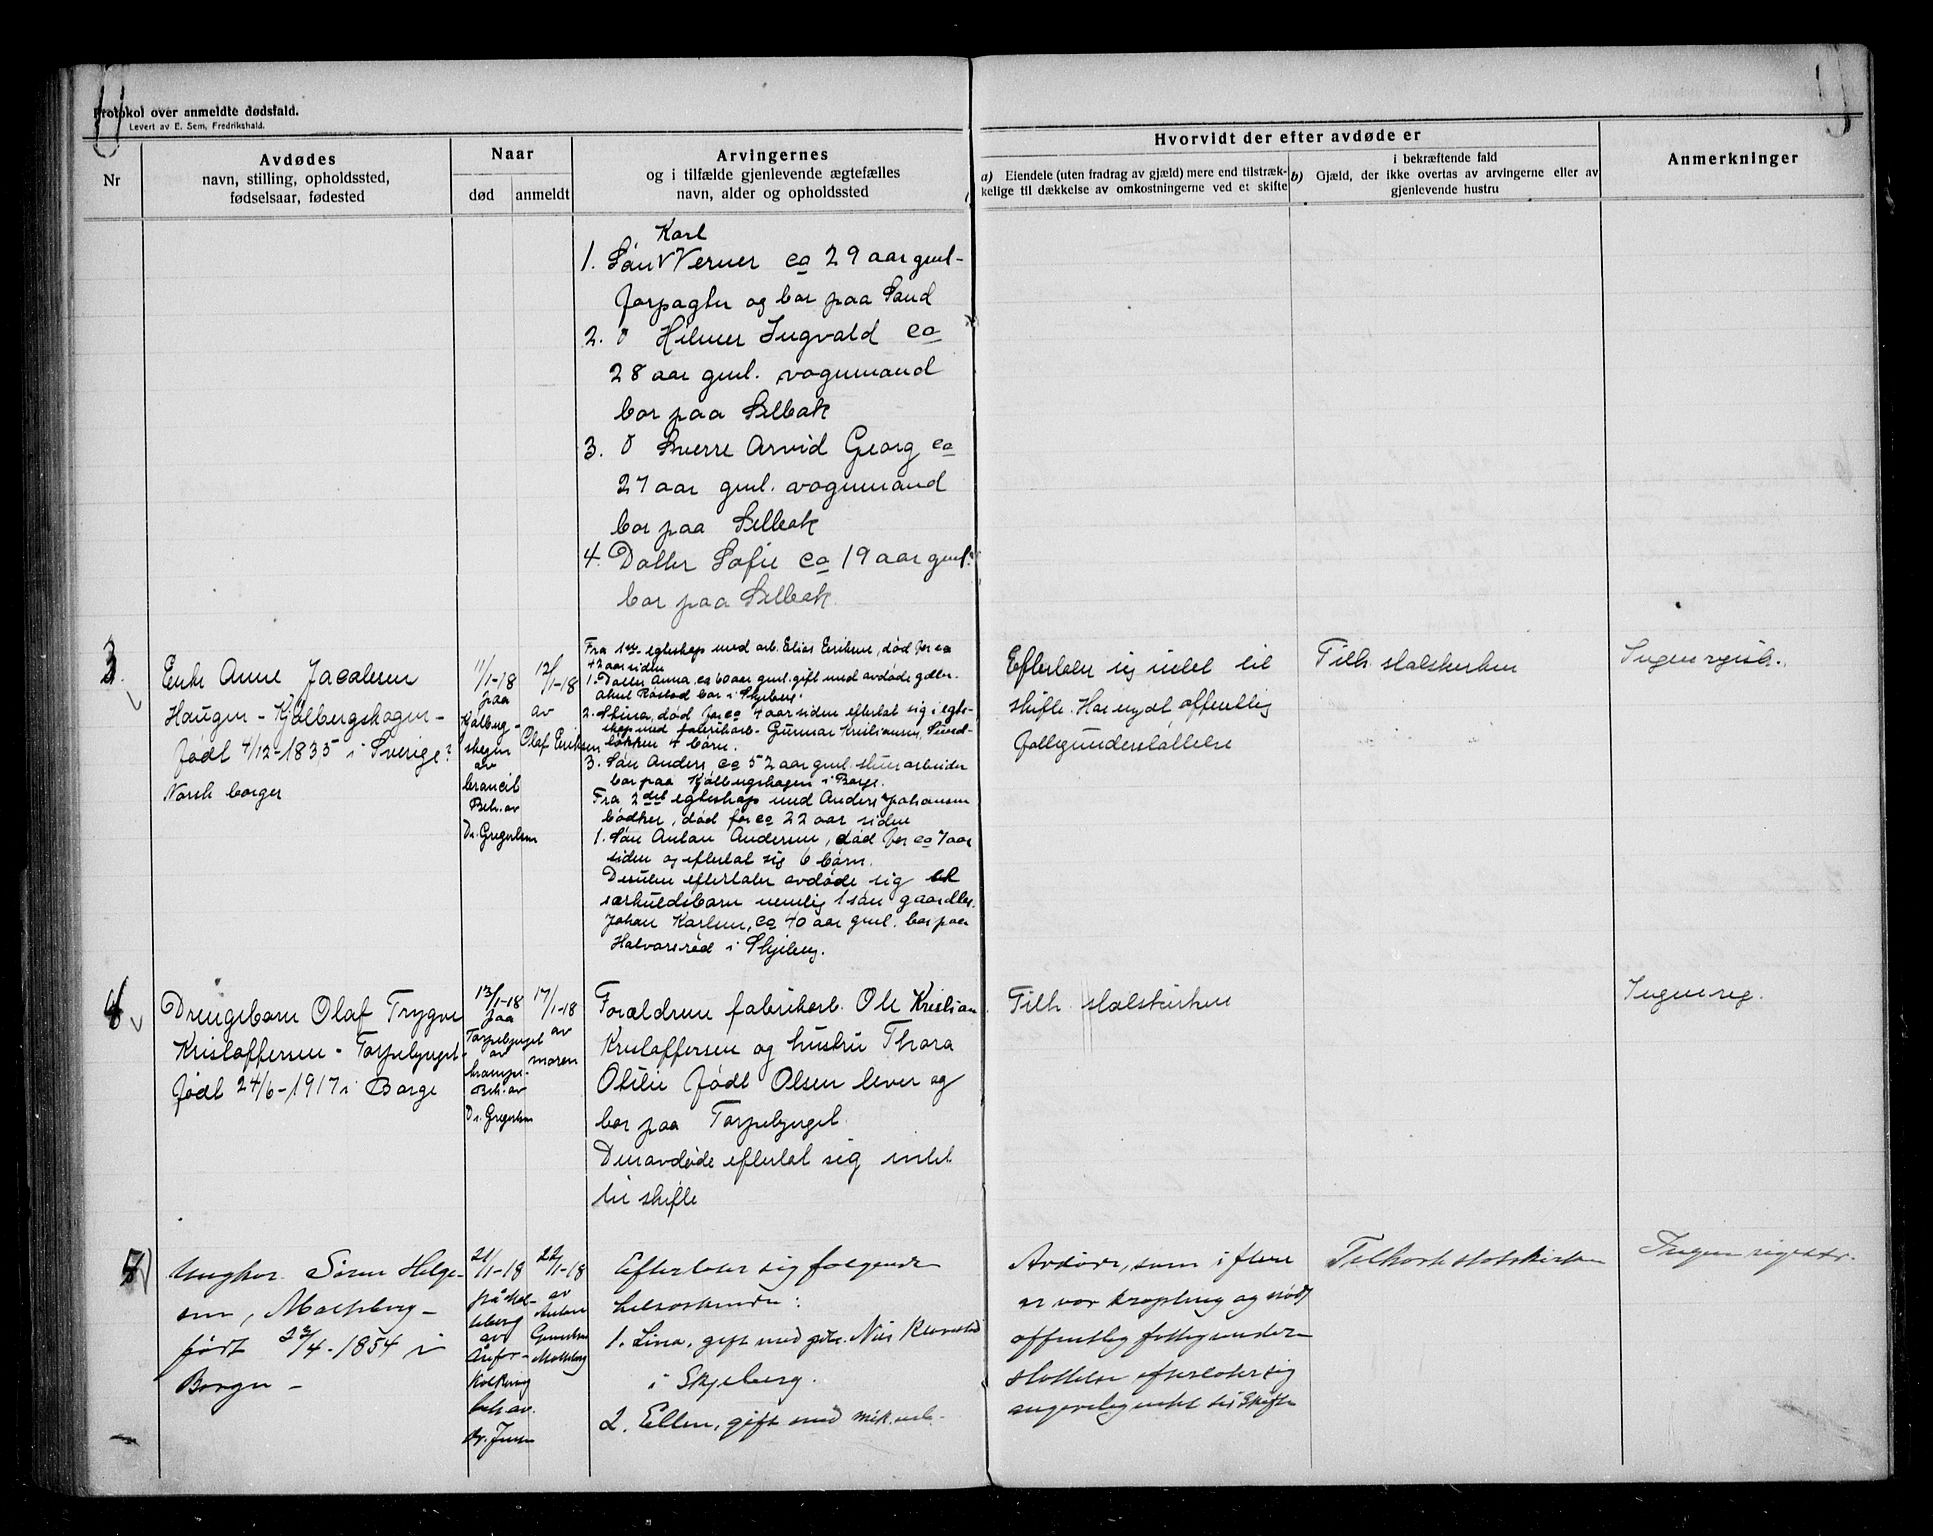 Protokol over anmeldte dødsfald.
Levert av E. Sem, Fredrikshald.
Nr
Avdødes
navn, stilling, opholdssted,
fødselsaar, fødested
Naar
død
anmeldt
Arvingernes
og i tilfælde gjenlevende ægtefælles
navn, alder og opholdssted
Hvorvidt der efter avdøde er
a) Eiendele (uten fradrag av gjæld) mere end tilstræk-
kelige til dækkelse av omkostningerne ved et skifte
i bekræftende fald
b) Gjæld, der ikke overtas av arvingerne eller av
gjenlevende hustru
Anmerkninger
Karl
1. Søn Verner ca 29 aar gml.
forpagter og bor paa Sand
2. " Hilmer Ingvald ca
28 aar gml. vognmand
bor paa Selbak
3. " Sverre Arvid Georg ca
27 aar gml. vognmand
bor paa Selbak
4. Datter Sofie ca 19 aar gml.
bor paa Selbak
3.
Enke Anne Jacobsen
Haugen - Kjølbergskogen -
født 4/12-1835 i Sverige?
Norsk borger
11/1-18
paa
Kølberg-
skogen
av
broncit
Beh. av
Dr. Gregersen
12/1-18
av
Olaf Eriksen
Fra 1ste egteskap med arb. Elias Eriksen, død for ca
42 aar siden
1. Datter Anna, ca 60 aar gml. gift med avdøde gdbr.
Røstad bor i Skjeberg.
2. Stina, død for ca 4 aar siden efterlot sig i egte-
skap med fabrikarb. Gunnar Kristiansen,
4 børn.
3. Søn Anders ca 52 aar gml. stenarbeider
bor paa Kjølbergskogen i Borge.
Fra 2det egteskap med Anders Johansen
bødker, død for ca 22 aar siden
1. Søn Anton Andersen, død for ca 7 aar
siden og efterlot sig 6 børn.
Desuten efterlater avdøde sig et
særkuldsbarn nemlig 1 søn gaardbr.
Johan Karlsen, ca 40 aar gml. bor paa
Halvorsrød i Skjeberg.
Efterlater sig intet til
skifte. Har nydt offentlig
fattigunderstøttelse
Tilh. statskirken
Ingen regist.
4
Drengebarn Olaf Trygve
Kristoffersen - Torpebjerget -
født 24/6-1917 i Borge
13/1-18
paa
Torpebjerget
av
krampe.
Beh. av
Dr. Gregersen
17/1-18
av
moren
Forældrene fabrikarb. Ole Kristian
Kristoffersen og hustru Thora
Otilie født Olsen lever og
bor paa Torpebjerget.
Den avdøde efterlot sig intet
til skifte
Tilh. statskirken
Ingen reg.
5
Ungkar Søren Helge-
sen,
født 22/4-1854 i
Borge -
21/1-18
på
av
beh av.
Dr. Jensen
22/1-18
av
Anton
Efterlater sig følgende
helsøskende:
1. Lina, gift med gdbr. Nils
i Skjeberg.
2. Ellen, gift med
Avdøde, som i flere
år var krøpling og nødt
offentlig fattigunder-
støttelse efterlater sig
angivelig intet til skifte
Tilhørt statskirken
Ingen registr.